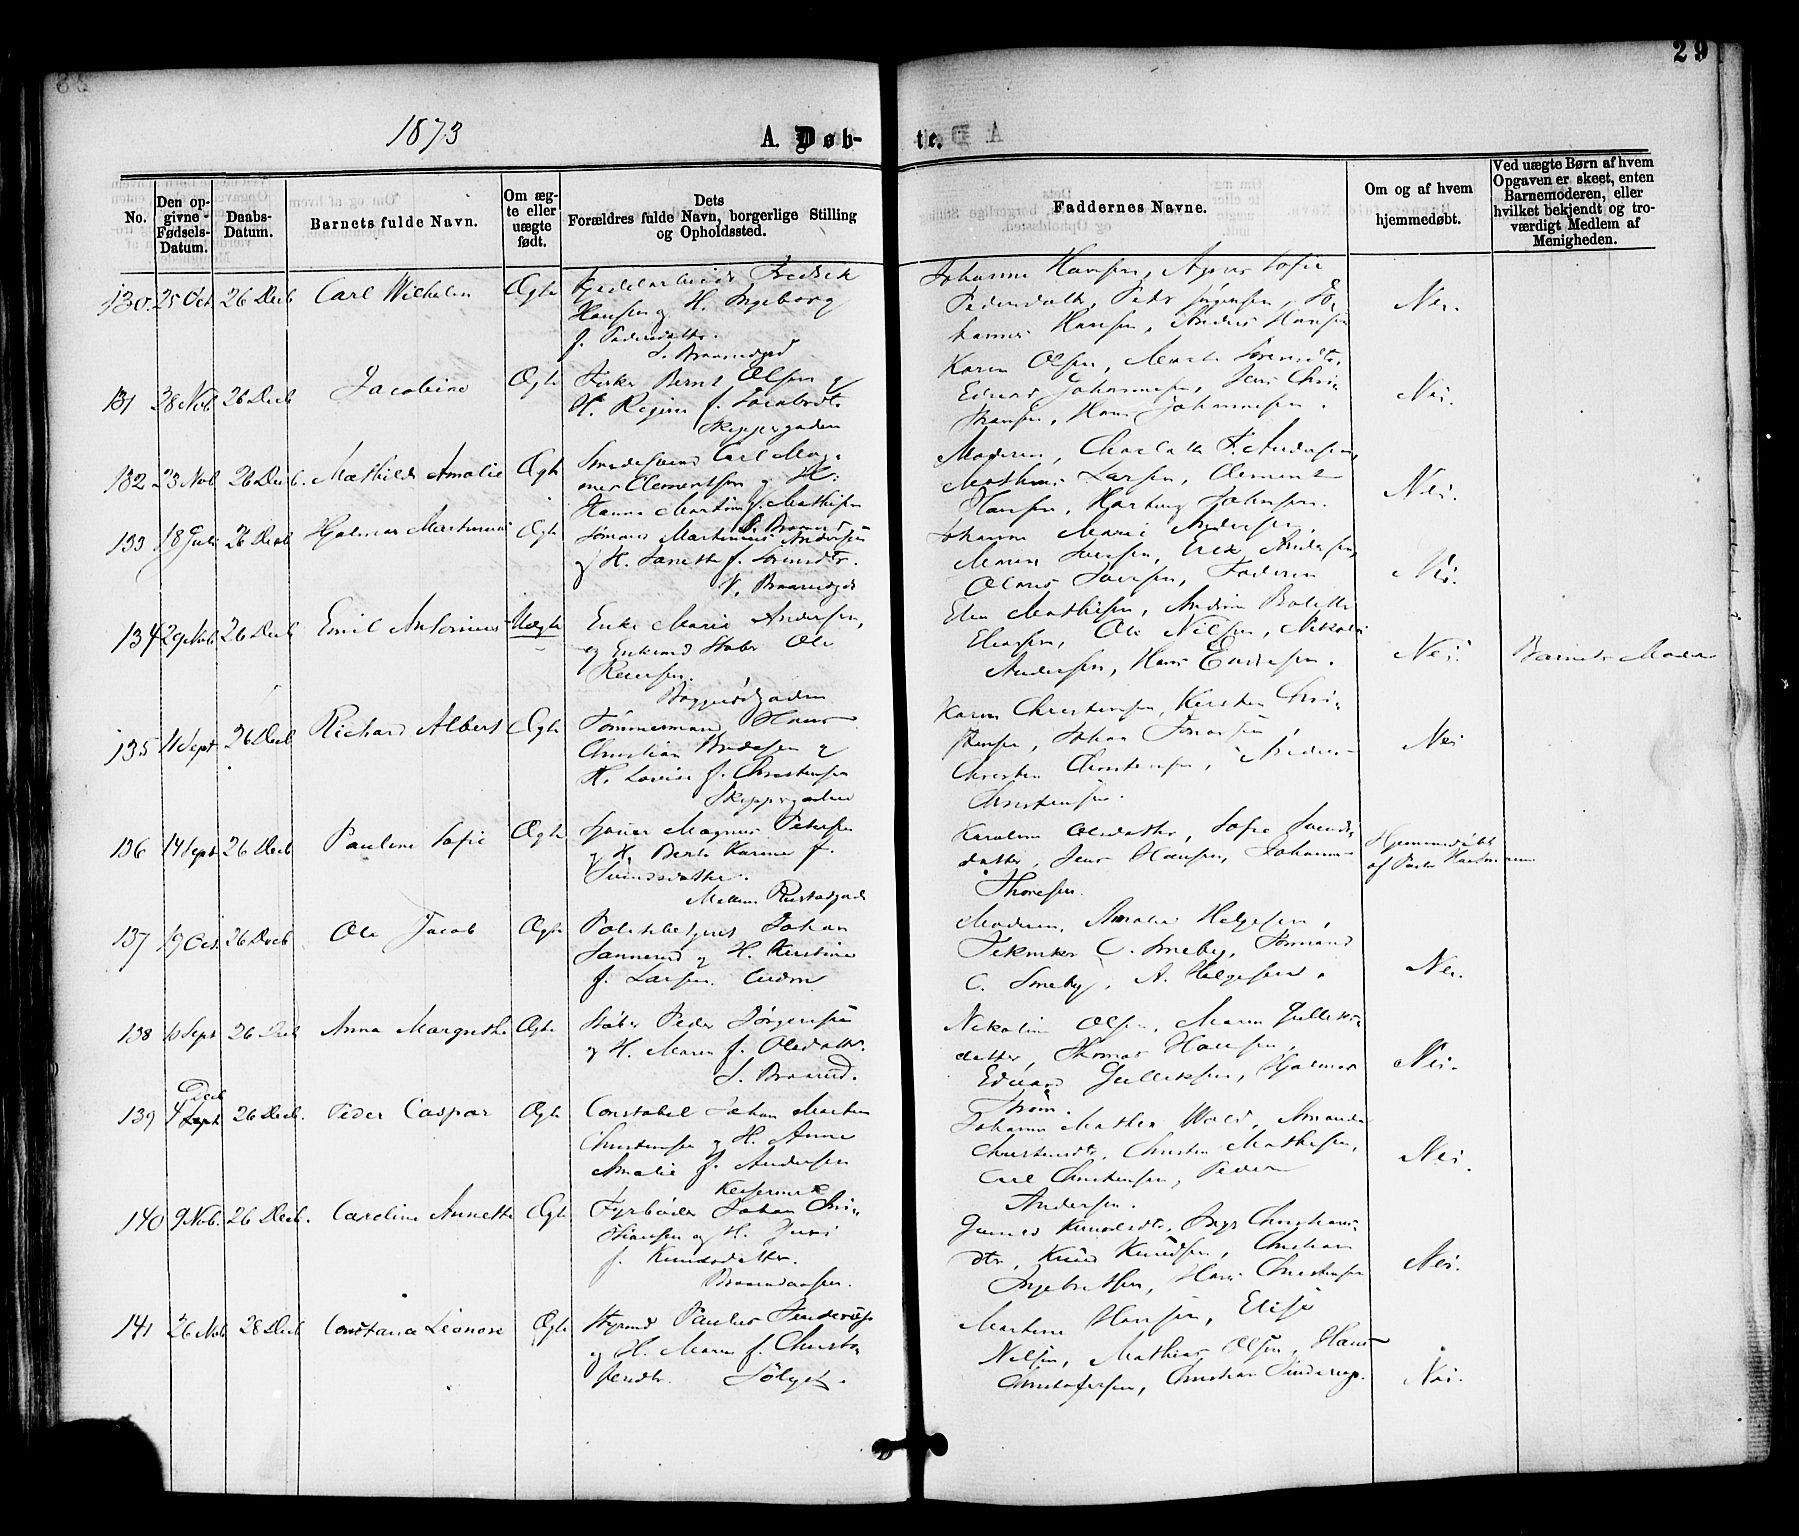 29
1873
A. Døb-
te.
No.
Den op-
givne
Fødsels-
Datum.
Daabs-
Datum.
Barnets fulde Navn.
Om æg-
te eller
uægte
født.
Dets
Forældres fulde Navn, borgerlige Stilling
og Opholdssted.
Faddernes Navne.
Om og af hvem
hjemmedøbt.
Ved uægte Børn af hvem
Opgaven er skeet, enten
Barnemoderen, eller
hvilket bekjendt og tro-
værdigt Medlem af
Menigheden.
130. 25 Oct 26 Decb Carl Wilhelm Ægte Fredrik
Hansen og H. Ingeborg
f. Pedersdatter.
Johanne Hansen, Agnes Sofie
Pedersdatter, Peder Jørgensen, Jo-
hannes Hansen, Anders Hansen
Nei.
131 28 Nob. 26 Decb Jacobine Ægte Fisker Bernt Olsen og
H. Regine f. Jacobsdtr.
Skippergaden
Karen Olsen, Marte Sørensdtr.
Eduard Johannesen, Jens Chri-
stiansen, Hans Johannesen.
Nei.
132 23 Nob 26 Decb. Mathilde Amalie Ægte Smedesvend Carl Mag-
nus Clementsen og H.
Hanna Martine f. Mathisen
Moderen, Charlotte F. Andersen,
Mathias Larsen, Clement
Hansen, Hartvig Johansen.
Nei.
133 18 Juli 26 Decb Hjalmar Martinius Ægte Sømand Martinius Andersen
og H. Janette f. Sørensdtr.
Johanne Marie Andersen,
Maren Iversen, Erik Andersen,
Olaus Iversen, Faderen
Nei.
134 29 Nob. 26 Decb Emil Antonius Uægte Enke Maria Andersen,
og Enkemd Støber Ole
Reiersen.
Elen Mathisen, Andrine Bolette
Eliasen, Ole Nilsen, Nikolai
Andersen, Hans Endresen.
Nei. Barnets Moder
135 11 Sept 26 Decb Richard Albert Ægte Tømmermand Hans
Christian Andersen og
H. Lovise f. Christensen
Skippergaden
Karen Christensen, Kirsten Chri-
stensen, Johan Jonassen
Christen Christensen, Anders
Christensen.
Nei
136 14 Sept 26 Decb Pauline Sofie Ægte Magnus Petersen
og H. Berte Karine f.
Svendsdatter.
Karoline Olsdatter, Sofie Svends-
datter, Jens Hansen, Johannes
Thoresen.
Hjemmedøbt
af Pastor
137 19 Oct. 26 Decb Ole Jacob Ægte Politibetjent Johan
Sannerud og H. Kirstine
f. Larsen.
Moderen, Amalie Helgesen,
C. Smeby, Sømand
C. Smeby, A. Helgesen.
Nei.
138 10 Sept 26 Decb Anna Margrethe Ægte Støber Peder Jørgensen
og H. Maren f. Olsdatter.
Nikoline Olsen, Maren Gulliks-
datter, Thomas Hansen,
Eduard Gulliksen, Hjalmar
Strøm.
Nei.
139 4 Decb Sept 26 Decb. Peder Caspar Ægte Constabel Johan Martin
Christensen og H. Anne
Amalie f. Andersen
Johanne Mathea Wold, Amanda
Christensdtr., Christen Mathisen,
Carl Christensen, Peder
Andersen.
Nei.
140 9 Nob. 26 Decb. Caroline Annette Ægte Fyrbøder Johan Chri-
stiansen og H. Juri
f. Knudsdatter.
Gunild Knudsdtr., Inge Christians-
dtr, Knud Knudsen, Christian
Ingebretsen, Hans Christensen
Nei.
141 26 Nob 28 Decb Constance Leonore Ægte Styrmd Paulus Sinderup
og H. Maren f. Christo-
fersdtr.
Martine Hansen, Elise
Nilsen, Mathias Olsen, Hans
Christofersen, Christian Sinderup.
Nei.